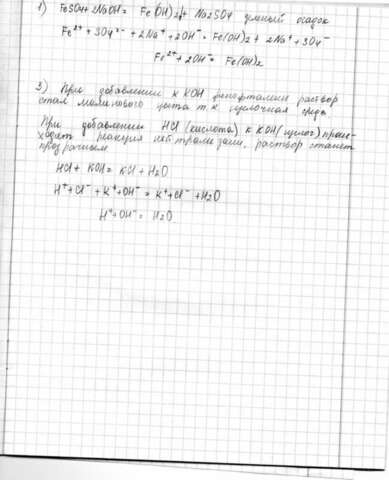 1) FeSO4+2NaOH= Fe(OH)2↓+ Na2SO4 темный осадок
Fe²⁺ + SO4²⁻ + 2Na⁺ + 2OH⁻ = Fe(OH)2 + 2Na⁺ + SO4⁻
Fe²⁺ + 2OH⁻ = Fe(OH)2
3) При добавлении к KOH фенолфталеин раствор
стал малинового цвета т.к. щелочная среда
При добавлении HCl (кислота) к KOH (щелоч) проис-
ходит реакция нейтрализации, раствор станет
прозрачным
HCl + KOH = KCl + H2O
H⁺ + Cl⁻ + K⁺ + OH⁻ = K⁺ + Cl⁻ + H2O
H⁺ + OH⁻ = H2O